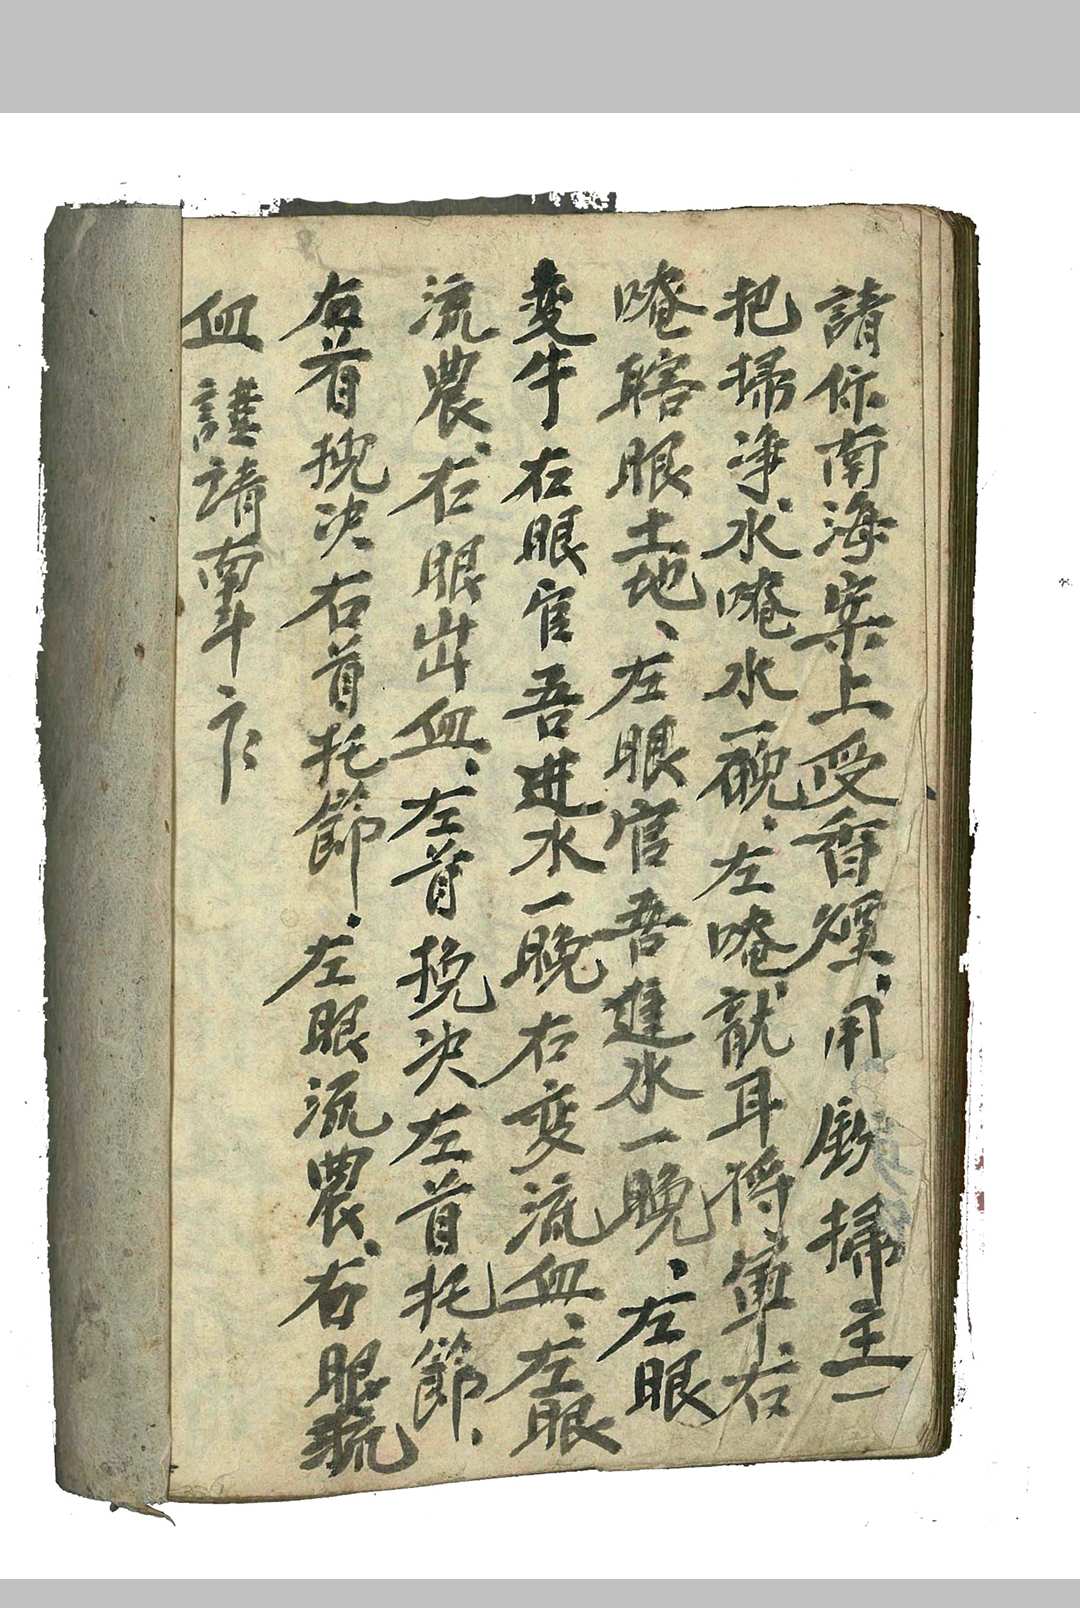 請你南海案上受香煙、用 掃主一
把掃凈、水唵水一碗、左唵龍耳將軍、右
唵瞎眼土地、左眼官吾進水一晚、左眼
变牛右眼官吾进水一晚右变流血、左眼
流農、右眼出血、左首挽决左首托節、
右首挽决右首托節、左眼流農、右眼流
血 謹請南斗